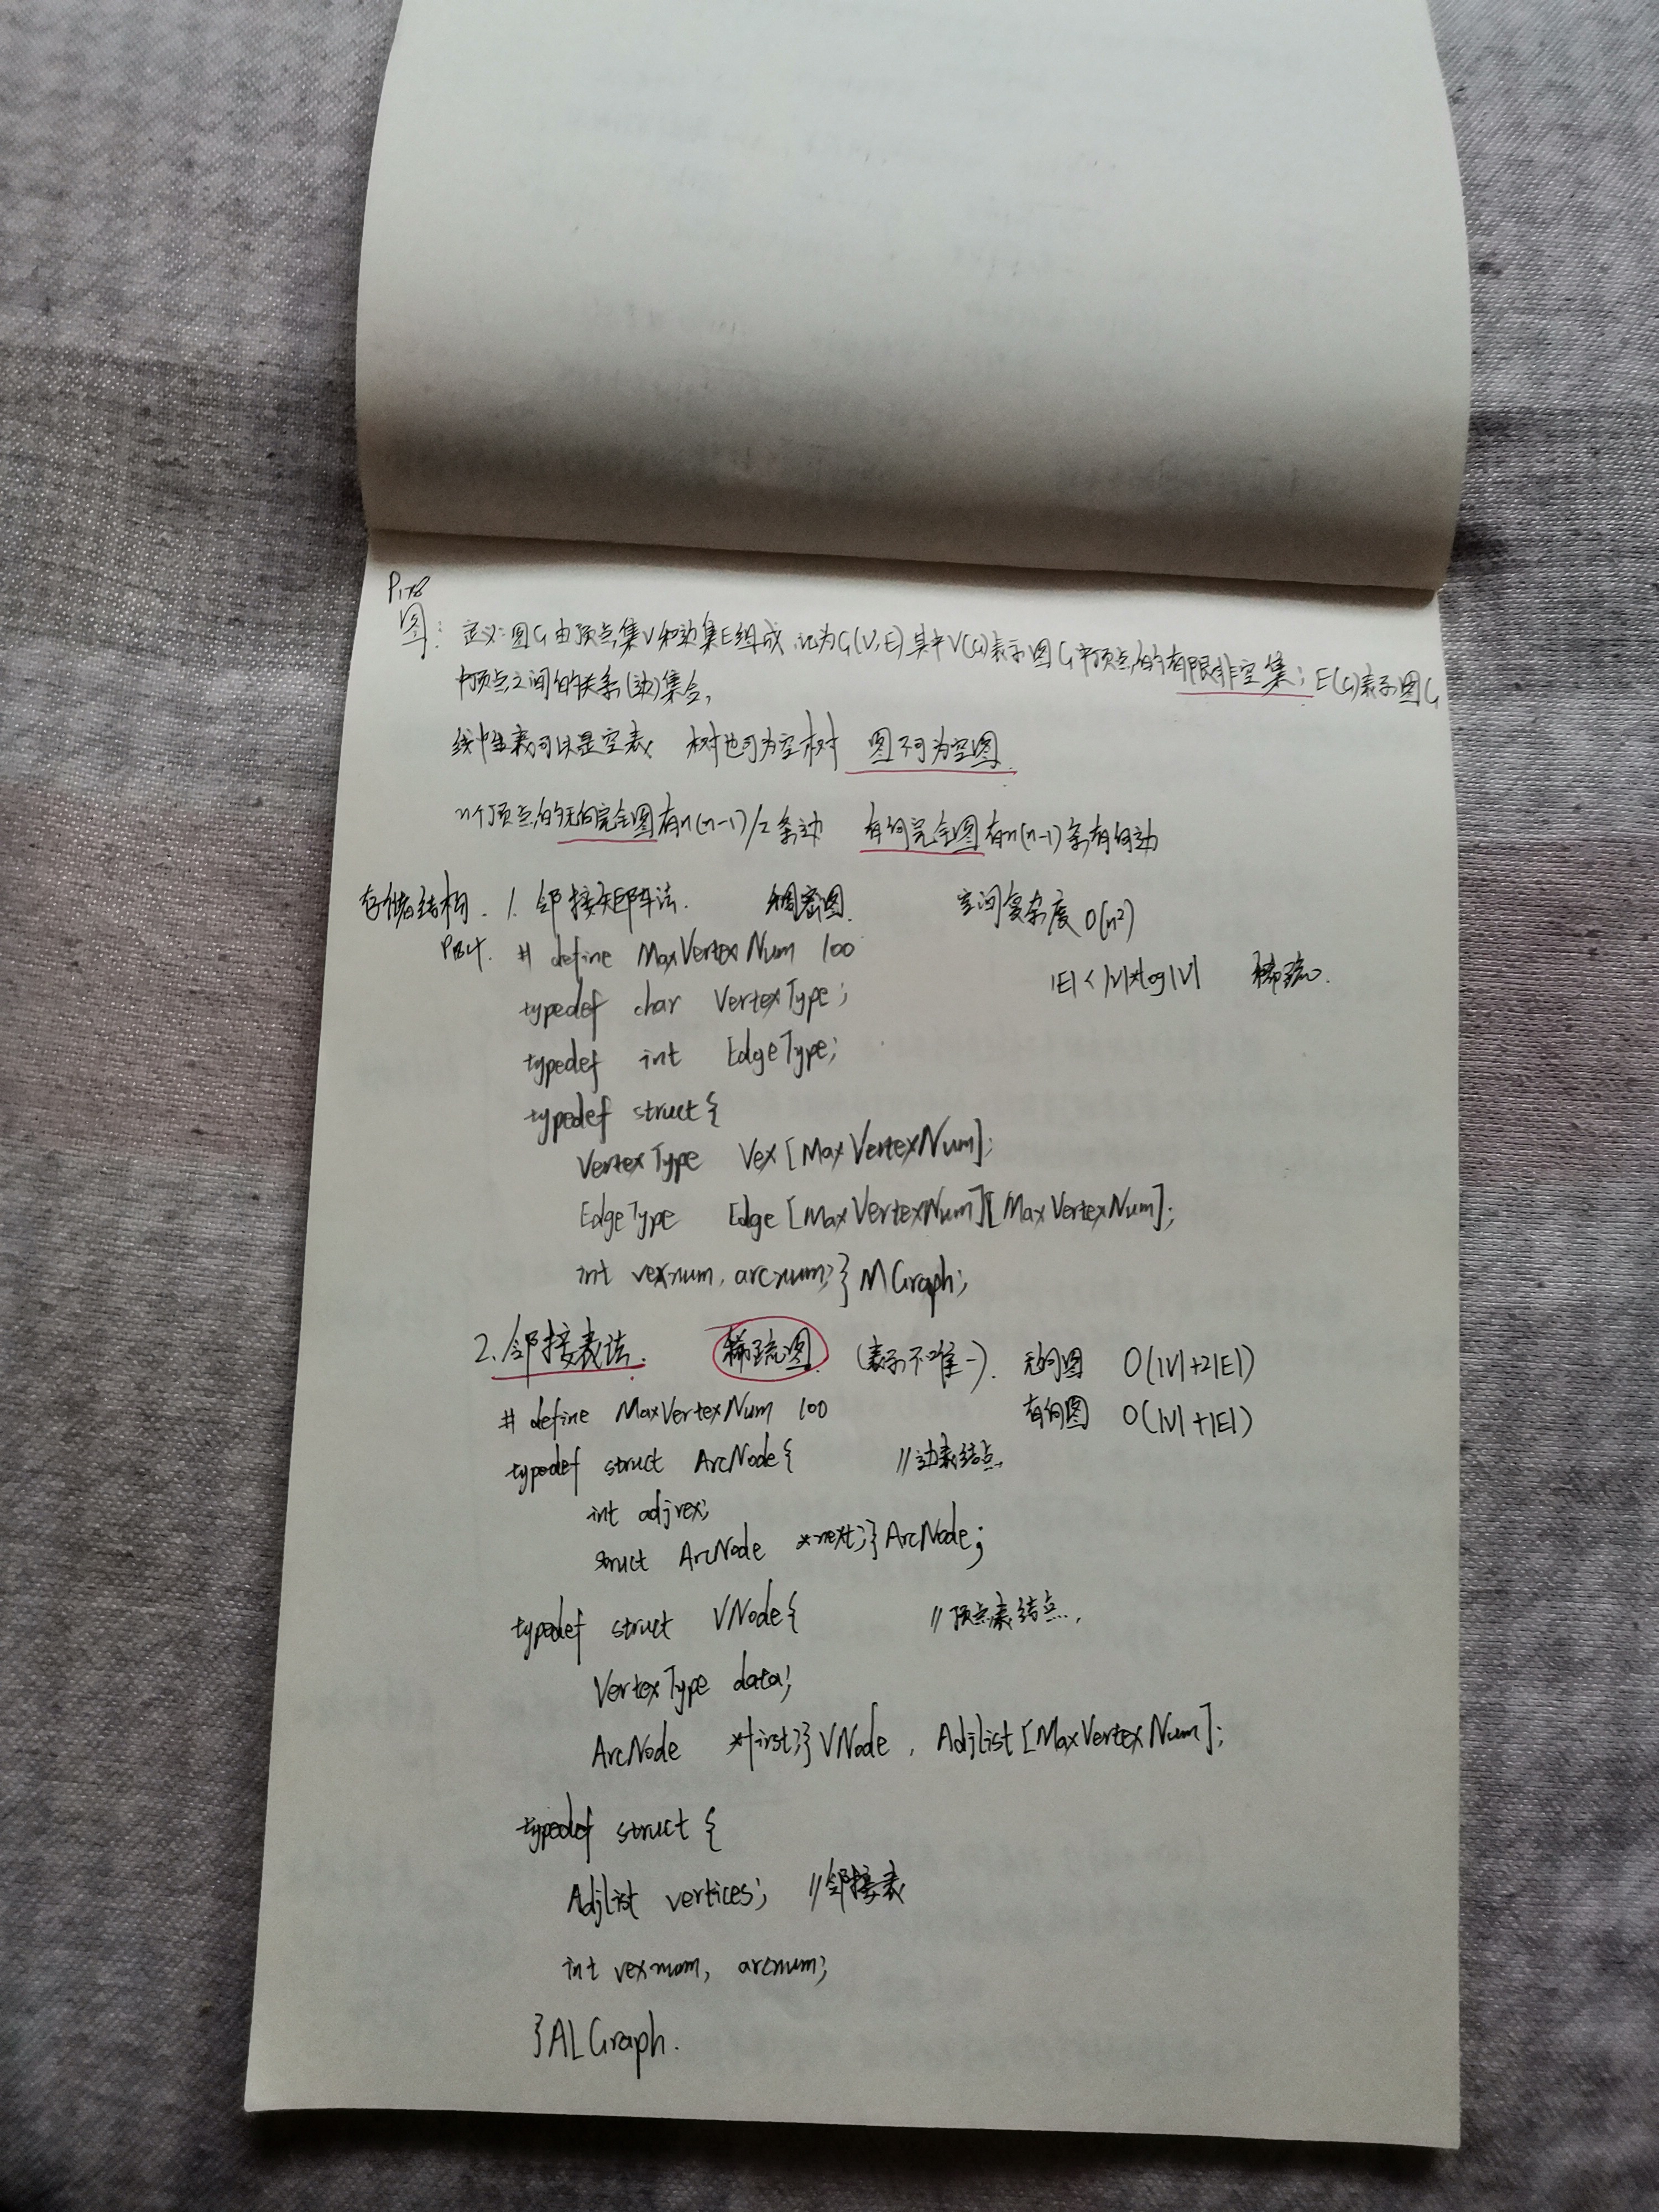 P178
图: 定义:图G由顶点集V和边集E组成,记为G(V,E) 其中V(G)表示图G中顶点的有限非空集; E(G)表示图G
中顶点之间的关系(边)集合,
线性表可以是空表 树也可为空树 图不可为空图.
n个顶点的无向完全图有n(n-1)/2条边 有向完全图有n(n-1)条有向边
存储结构. 1. 邻接矩阵法. 稠密图. 空间复杂度 O(n²)
# define MaxVertexNum 100
|E| < |V|*log|V| 稀疏.
typedef char VertexType;
typedef int EdgeType;
typedef struct{
VertexType Vex[MaxVertexNum];
EdgeType Edge[MaxVertexNum][MaxVertexNum];
int vexnum, arcnum;} MGraph;
2. 邻接表法. 稀疏图 (表示不唯一). 无向图 O(|V|+2|E|)
# define MaxVertexNum 100 有向图 O(|V|+|E|)
typedef struct ArcNode{ //边表结点
int adjvex;
struct ArcNode *next;} ArcNode;
typedef struct VNode{ //顶点表结点,
VertexType data;
ArcNode *first;} VNode, Adjlist[MaxVertexNum];
typedef struct {
Adjlist vertices; //邻接表
int vexnum, arcnum;
}ALGraph.